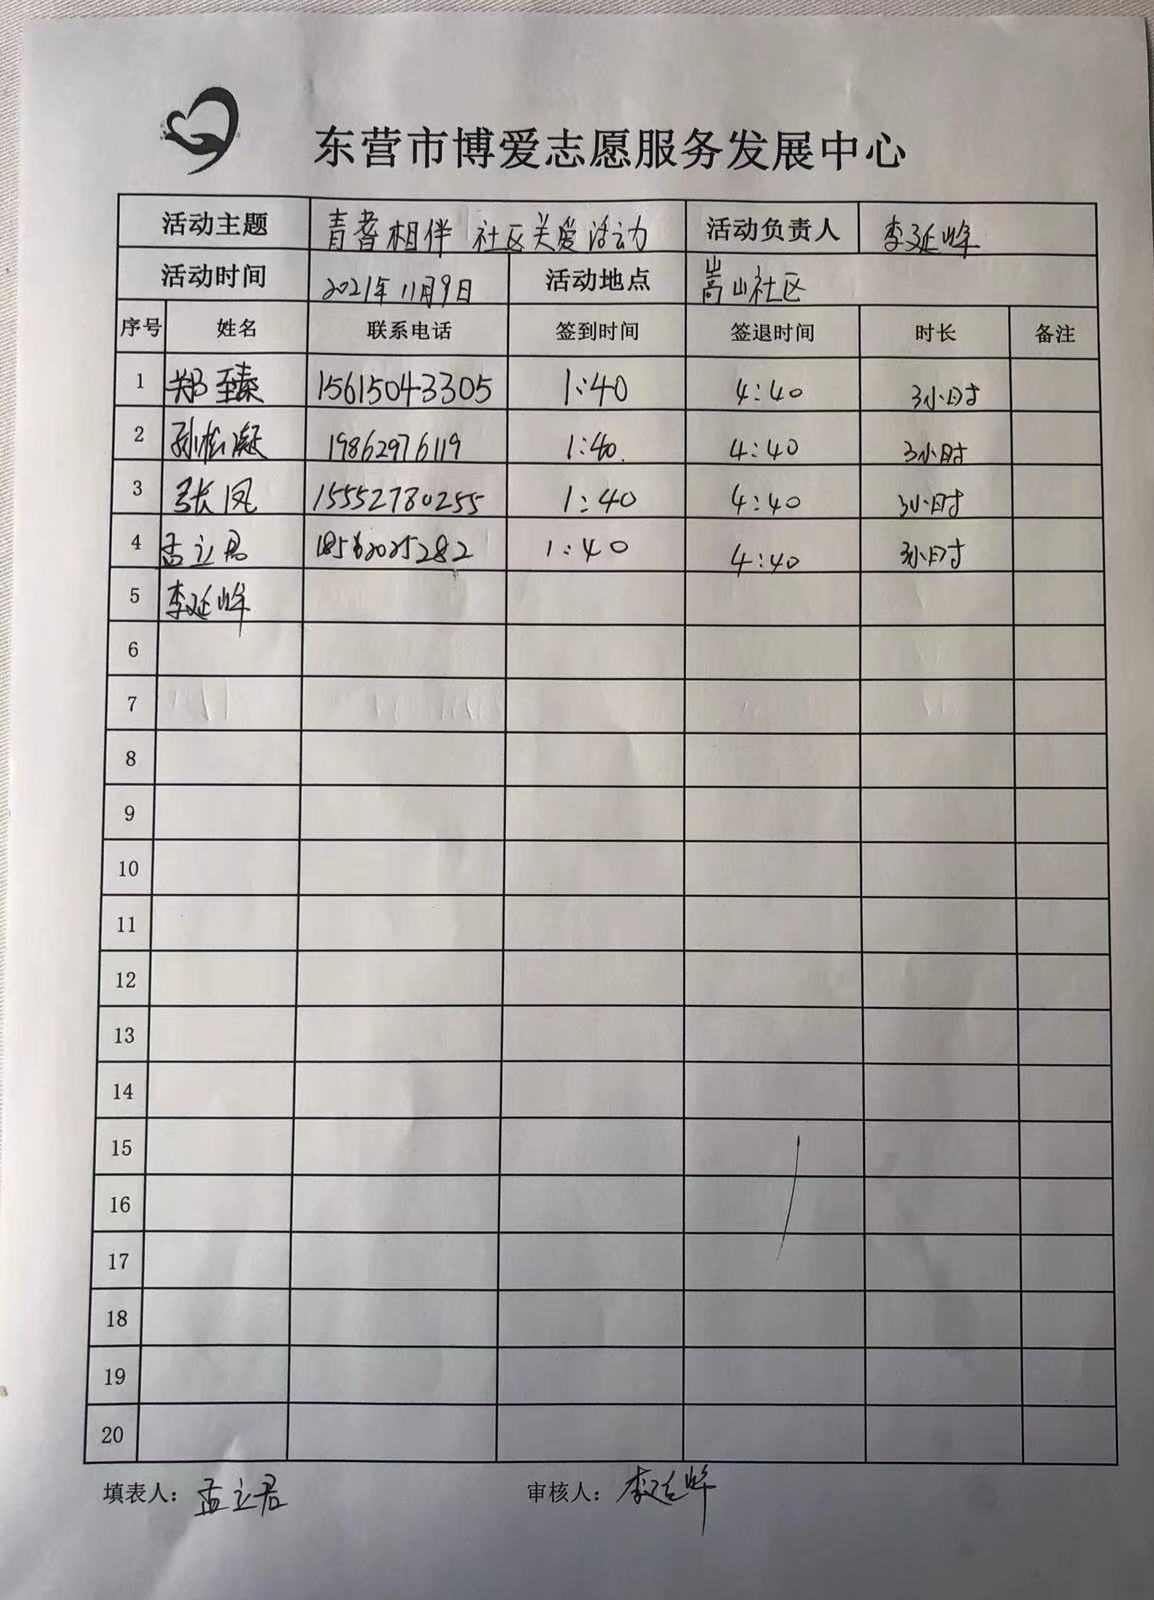 东营市博爱志愿服务发展中心
活动主题 青耆相伴 社区关爱活动 活动负责人 李延峰
活动时间 2021年11月9日 活动地点 嵩山社区
序号 姓名 联系电话 签到时间 签退时间 时长 备注
1 郑至臻 15615043305 1:40 4:40 3小时
2 孙松凝 19862976119 1:40 4:40 3小时
3 张凤 15552780255 1:40 4:40 3小时
4 孟立君 18562025282 1:40 4:40 3小时
5 李延峰
6
7
8
9
10
11
12
13
14
15
16
17
18
19
20
填表人：孟立君 审核人：李延峰